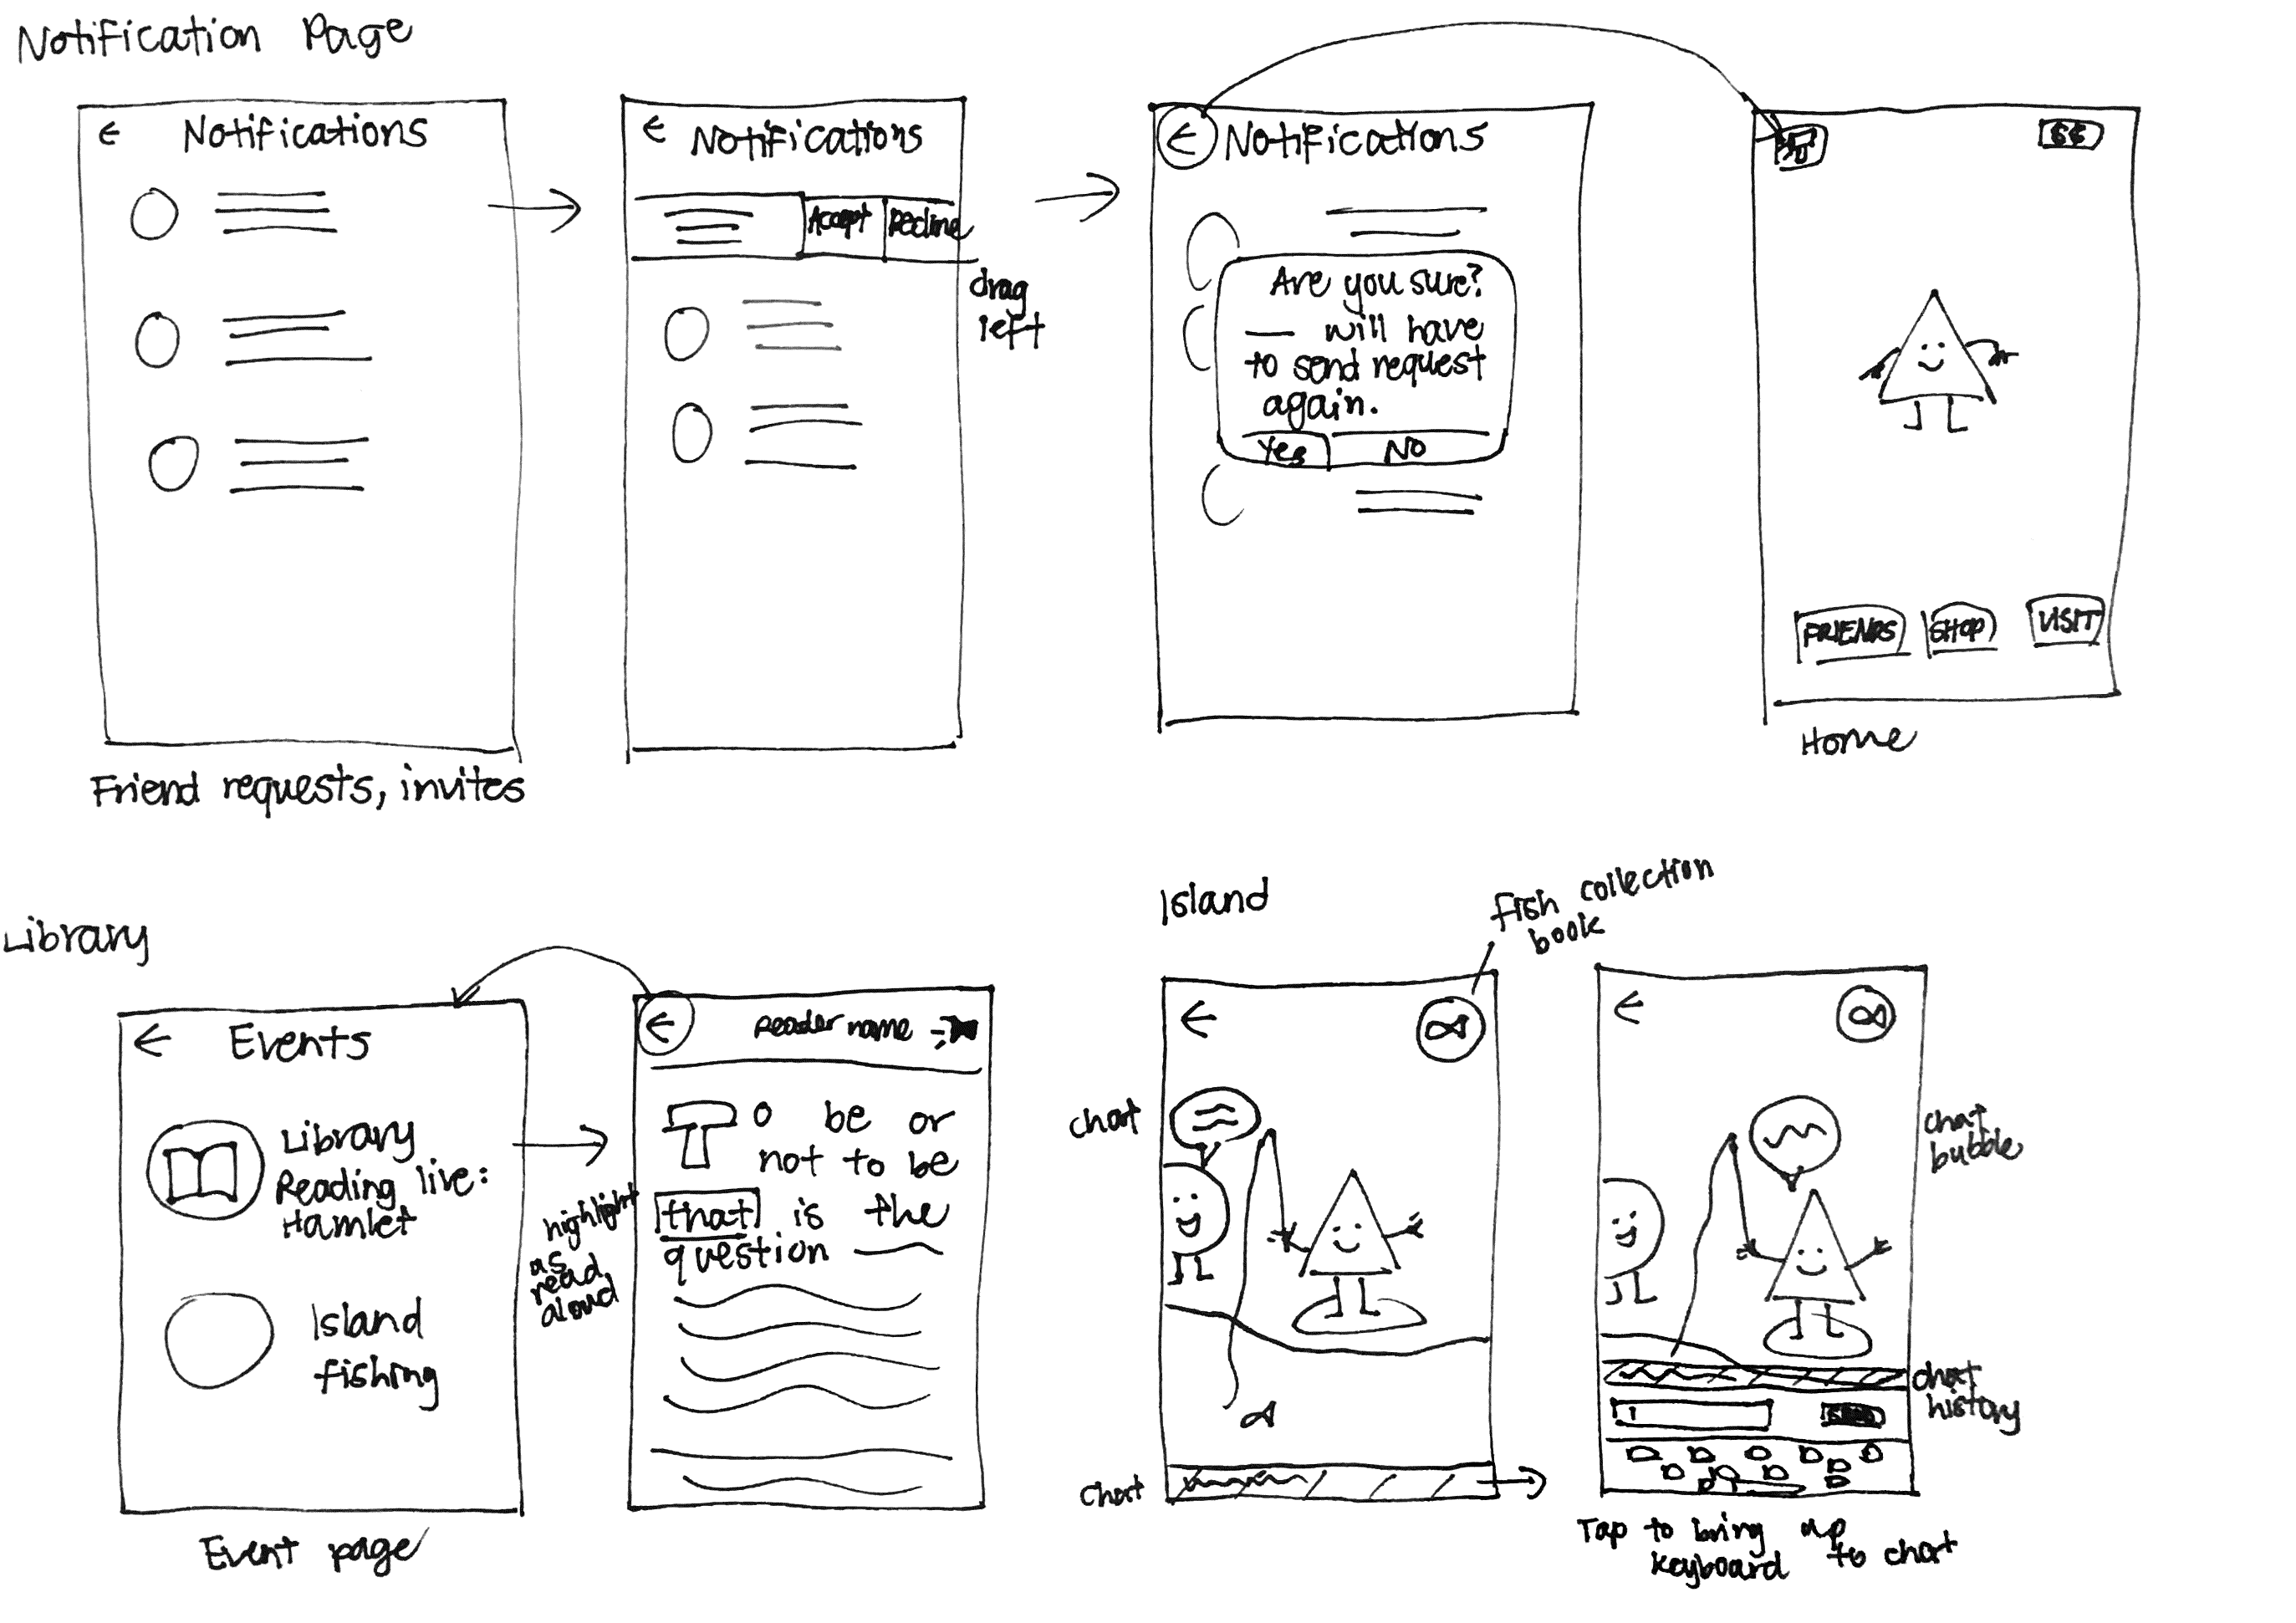 Notification Page
← Notifications
Friend requests, invites
← Notifications
Accept Decline
drag
left
← Notifications
Are you sure?
— will have
to send request
again.
Yes NO
$$
FRIENDS SHOP VISIT
Home
Library
← Events
Library
Reading live:
Hamlet
Island
fishing
Event page
← Reader name
To be or
not to be
that is the
question
highlight
as
read
aloud
Island
fish collection
book
←
chat
chat
←
chat
bubble
chat
history
Tap to bring up
keyboard to chat